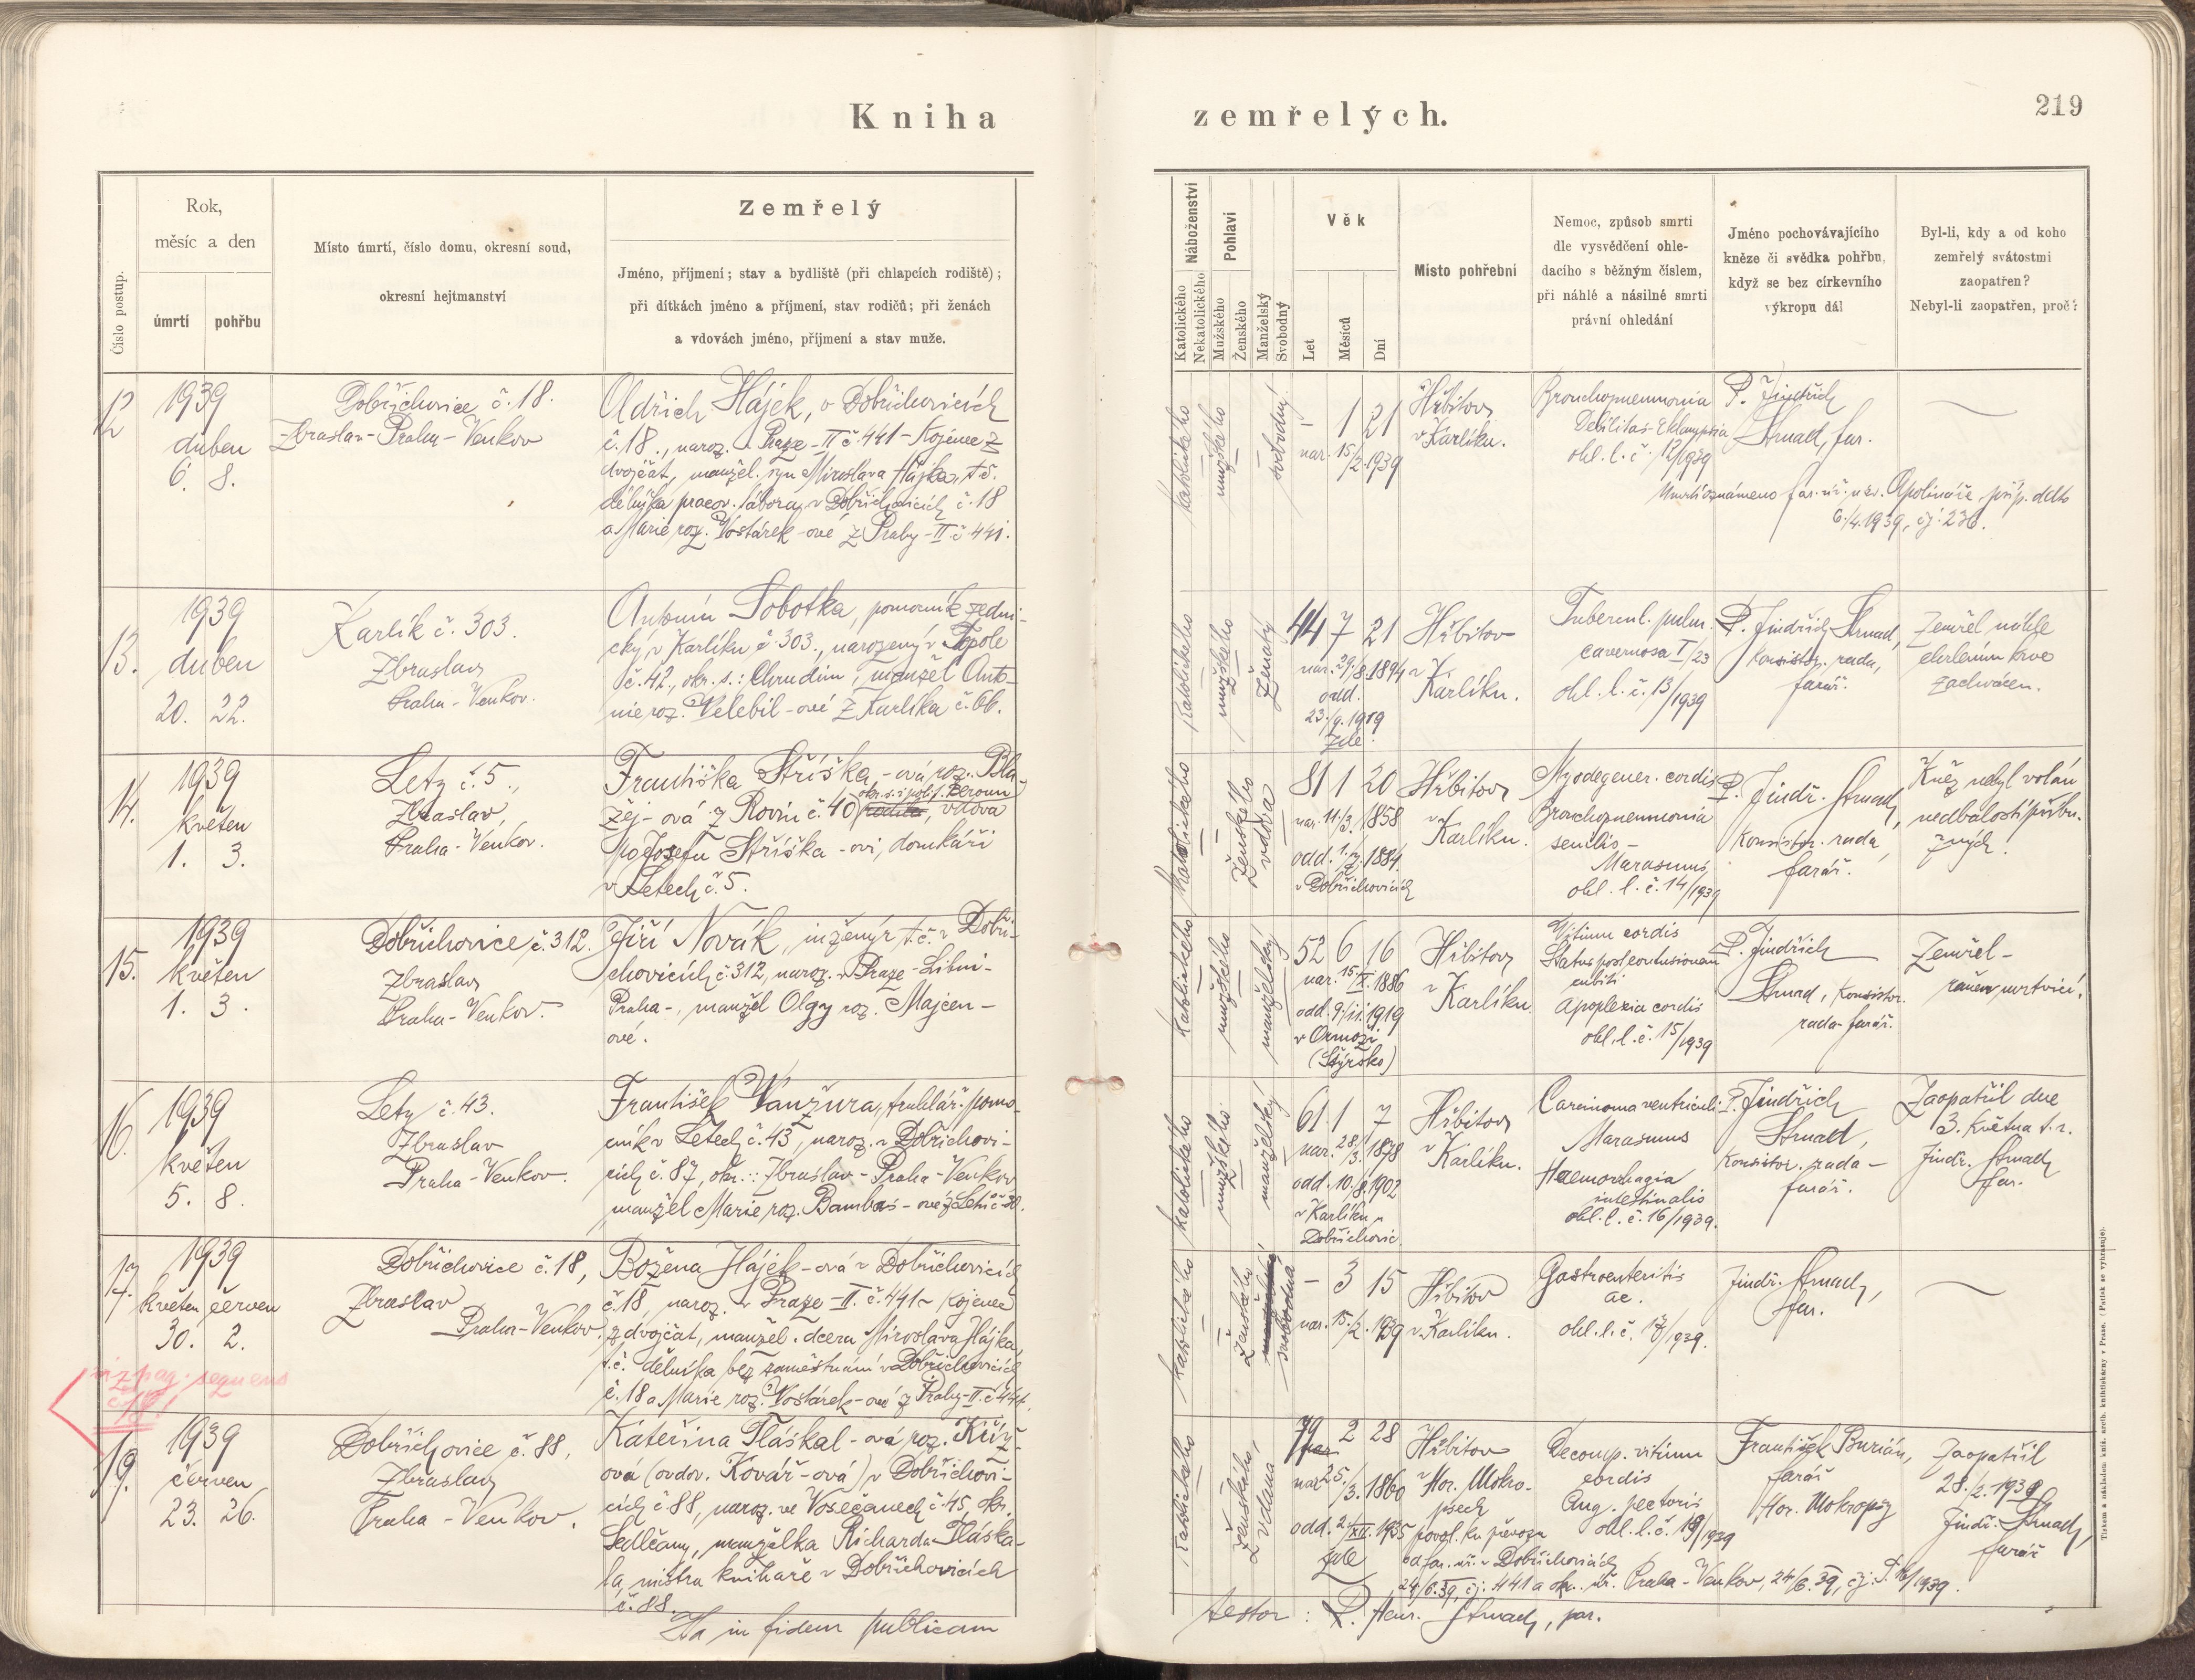 Kniha
zemřelých.
219
Číslo postup.
Rok,
měsíc a den
úmrtí
pohřbu
Místo úmrtí, číslo domu, okresní soud,
okresní hejtmanství
Zemřelý
Jméno, příjmení; stav a bydliště (při chlapcích rodiště);
při dítkách jméno a příjmení, stav rodičů; při ženách
a vdovách jméno, příjmení a stav muže.
Náboženství
Katolického
Nekatolického
Pohlaví
Mužského
Ženského
Manželský
Svobodný
Věk
Let
Měsíců
Dní
Místo pohřební
Nemoc, způsob smrti
dle vysvědčení ohle-
dacího s běžným číslem,
při náhlé a násilné smrti
právní ohledání
Jméno pochovávajícího
kněze či svědka pohřbu,
když se bez církevního
výkropu dál
Byl-li, kdy a od koho
zemřelý svátostmi
zaopatřen?
Nebyl-li zaopatřen, proč?
12
1939
duben
6. 8.
Dobřichovice č. 18.
Zbraslav-Praha-Venkov
Oldřich Hájek, v Dobřichovicích
č. 18., naroz. v Praze-II č. 441-Kojenec z
dvojčat, manžel. syn Miroslava Hájka, t. č.
dělníka pracov. tábora, v Dobřichovicích č. 18
a Marie roz. Vostárek-ové z Prahy-II č 441.
katolického
mužského
svobodný
- 1 21
nar. 15/2.1939
Hřbitov
v Karlíku.
Bronchopneumonia
Debilitas-Eklampsia
ohl. l. č. 12/1939
P. Jindřich
Strnad, far.
Úmrtí oznámeno far. úř. u sv. Apolináře příp. ddto
6./4.1939, čj. 236.
13.
1939
duben
20. 22.
Karlík č. 303.
Zbraslav
Praha-Venkov.
Antonín Sobotka, pomocník zedni-
cký, v Karlíku č. 303., narozený v Topole
č. 42., okr. s.: Chrudim, manžel Anto-
nie roz. Velebil-ové z Karlíka č. 06.
katolického
mužského
Ženatý
44 7 21
nar. 29./8.1894
odd.
23./9.1919
zde.
Hřbitov
v
Karlíku.
Tubercul. pulm.
cavernosa I/23
ohl. l. č. 13/1939
P. Jindřich Strnad,
Konsistor. rada,
farář.
Zemřel náhle
chrlením krve
zachvácen.
14.
1939
květen
1. 3.
Lety č. 5.,
Zbraslav,
Praha-Venkov.
Františka Stříška,-ová roz. Bla-
okr. s. i polit. Beroun
žej-ová z Rovin č. 40, vdova
po Josefu Stříška-ovi, domkáři
v Letech č. 5.
katolického
Ženského
vdova
81 1 20
nar. 11./3. 1858
odd. 1./7. 1884.
v Dobřichovicích
Hřbitov
v
Karlíku.
Myodegener. cordis
Bronchopneumonia
senilis-
Marasmus
ohl. l. č. 14/1939
P. Jindř. Strnad,
Konsistor. rada,
farář.
Kněz nebyl volán
nedbalostí příbu-
zných.
15.
1939
květen
1. 3.
Dobřichovice č. 312.
Zbraslav
Praha-Venkov.
Jiří Novák, inženýr t. č. v Dobři-
chovicích č. 312, naroz. v Praze-Libni-
Praha-, manžel Olgy roz. Majcen-
ové.
katolického
mužského
manželský
52 6 16
nar. 15./X. 1886
odd. 9./11.1919
v Ormoži
(Štýrsko)
Hřbitov
v
Karlíku.
Vitium cordis
Status post contusionem
cubiti
Apoplexia cordis
ohl. l. č. 15/1939
P. Jindřich
Strnad, Konsistor.
rada-farář.
Zemřel-
raněn mrtvicí!
16.
1939
květen
5. 8.
Lety č. 43.
Zbraslav
Praha-Venkov.
František Vanžura, truhlář. pomo-
cník v Letech č. 43, naroz. v Dobřichovi-
cích č. 87, okr.: Zbraslav-Praha-Venkov
manžel Marie roz. Bambas-ové z Letů č. 30.
katolického
mužského
manželský
61 1 7
nar. 28./3. 1878
odd. 10./8. 1902
v Karlíku
Dobřichovic.
Hřbitov
v
Karlíku.
Carcinoma ventriculi
Marasmus
Haemorrhagia
intestinalis
ohl. l. č. 16/1939.
P. Jindřich
Strnad,
Konsistor. rada-
farář.
Zaopatřil dne
3. května t. r.
Jindř. Strnad
far.
17.
1939
květen červen
30. 2.
Dobřichovice č. 18,
Zbraslav
Praha-Venkov.
Božena Hájek-ová v Dobřichovicích
č. 18, naroz. v Praze-II. č. 441- kojenec
z dvojčat, manžel. dcera Miroslava Hájka,
t. č. dělníka bez zaměstnání v Dobřichovicích
č. 18 a Marie roz. Vostárek-ové z Prahy-II. č 441.
katolického
Ženského
svobodná
- 3 15
nar. 15./2. 1939
Hřbitov
v Karlíku.
Gastroenteritis
ac.
ohl. l. č. 17/1939.
Jindř. Strnad,
far.
viz pag. sequens
č. 18!
19.
1939
červen
23. 26.
Dobřichovice č. 88,
Zbraslav
Praha-Venkov.
Kateřina Tláskal-ová roz. Kříž-
ová (ovdov. Kovář-ová) v Dobřichovi-
cích č 88, naroz. ve Vosečanech č. 45, okr.
Sedlčany, manželka Richarda Tláska-
la, mistra knihaře v Dobřichovicích
č. 88.
katolického
Ženského
vdaná
79 2 28
nar. 25./3. 1860
odd. 2./XII. 1935
zde
Hřbitov
v Hor. Mokro-
psech
povol. ku převozu
od far. úř. v Dobřichovicích
24/6.39, čj. 441 a okr. úř. Praha-Venkov, 24/6.39, čj. 16/1939.
Decomp. vitium
cordis
Ang. pectoris
ohl. l. č. 19/1939
František Burián,
farář
Hor. Mokropsy
Zaopatřil
28./2. 1939
Jindř. Strnad,
farář
Ita in fidem publicam
testor: P. Henr. Strnad, par.
Tiskem a nákladem kníž. arcib. knihtiskárny v Praze. (Patisk se vyhrazuje).